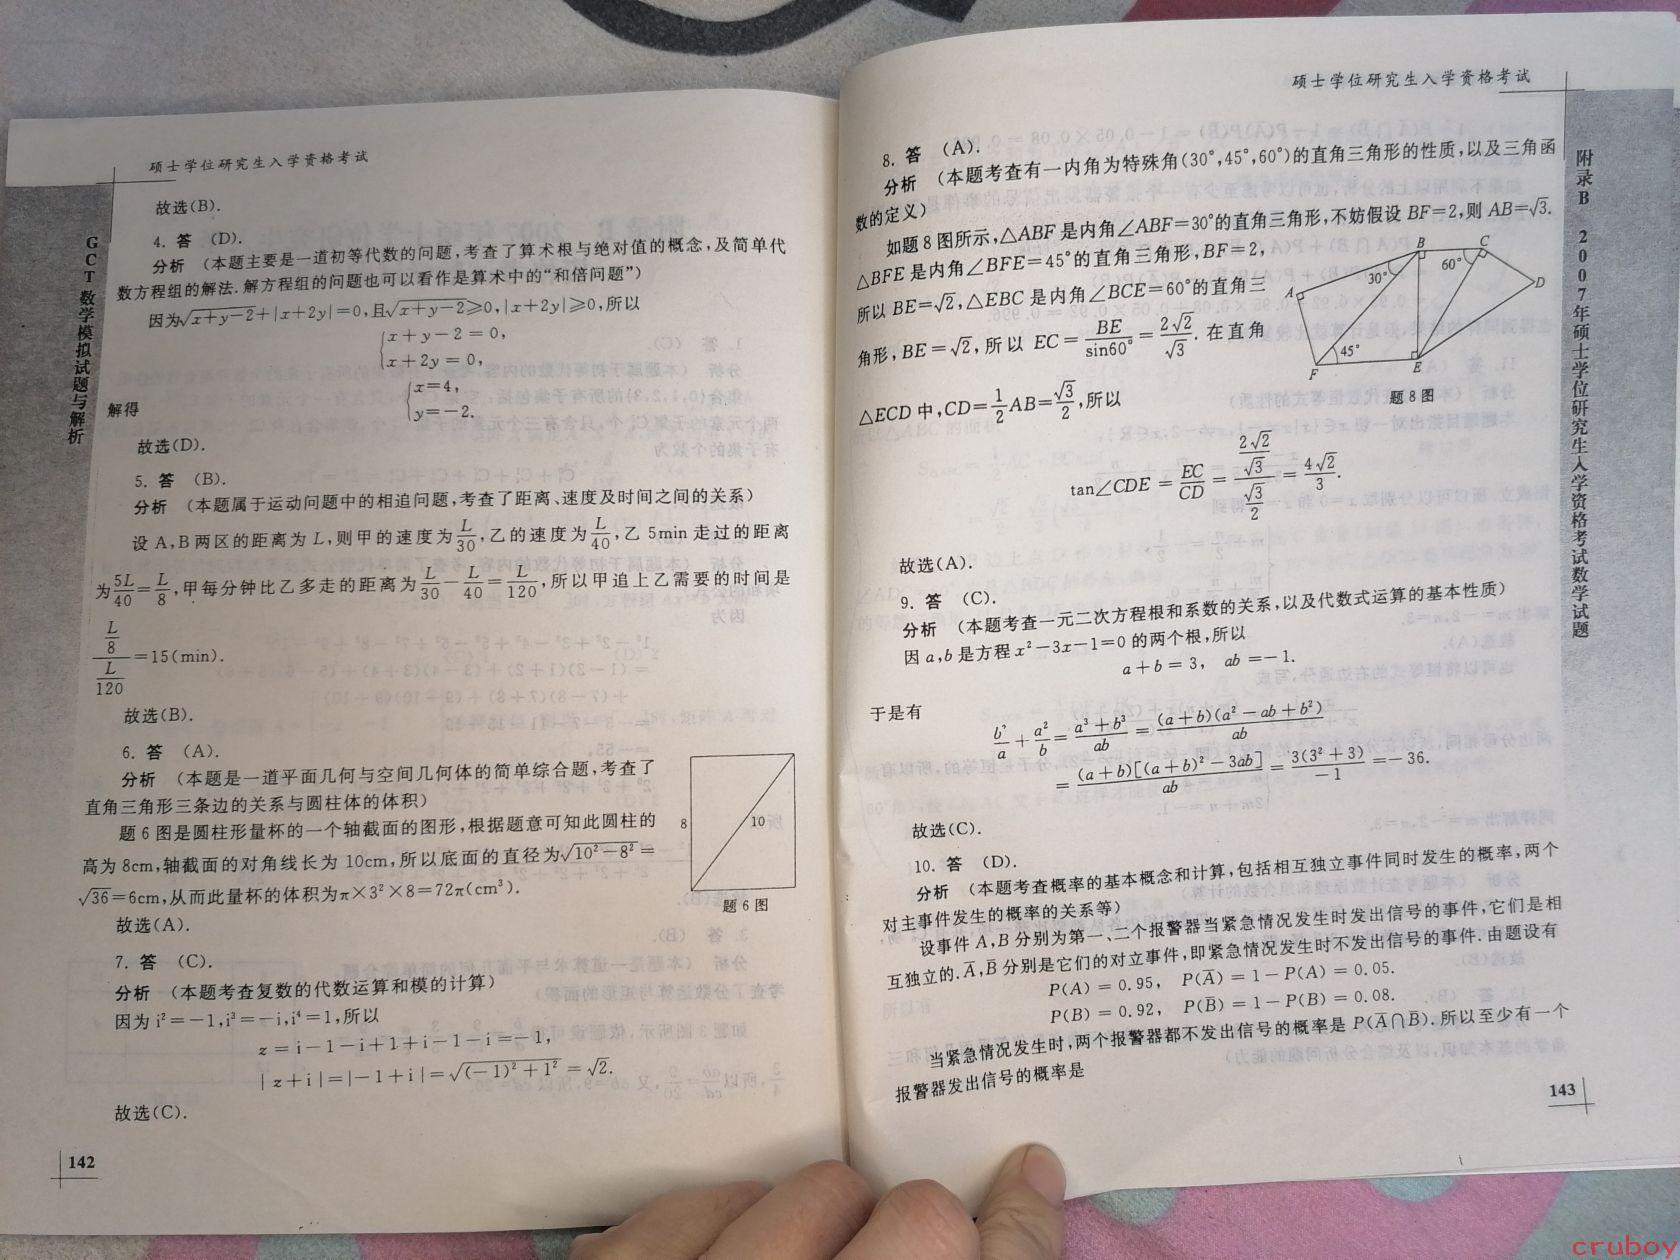 硕士学位研究生入学资格考试
GCT数学模拟试题与解析
故选(B).
4. 答 (D).
分析 (本题主要是一道初等代数的问题,考查了算术根与绝对值的概念,及简单代
数方程组的解法.解方程组的问题也可以看作是算术中的“和倍问题”)
因为√(x+y−2)+|x+2y|=0,且√(x+y−2)≥0,|x+2y|≥0,所以
x+y−2=0,
x+2y=0,
解得
x=4,
y=−2.
故选(D).
5. 答 (B).
分析 (本题属于运动问题中的相追问题,考查了距离、速度及时间之间的关系)
设A,B两区的距离为L,则甲的速度为L/30,乙的速度为L/40,乙5min走过的距离
为5L/40=L/8,甲每分钟比乙多走的距离为L/30−L/40=L/120,所以甲追上乙需要的时间是
(L/8)/(L/120)=15(min).
故选(B).
6. 答 (A).
分析 (本题是一道平面几何与空间几何体的简单综合题,考查了
直角三角形三条边的关系与圆柱体的体积)
题6图是圆柱形量杯的一个轴截面的图形,根据题意可知此圆柱的
高为8cm,轴截面的对角线长为10cm,所以底面的直径为√(10²−8²)=
√36=6cm,从而此量杯的体积为π×3²×8=72π(cm³).
8
10
题6图
故选(A).
7. 答 (C).
分析 (本题考查复数的代数运算和模的计算)
因为i²=−1,i³=−i,i⁴=1,所以
z=i−1−i+1+i−1−i=−1,
|z+i|=|−1+i|=√((−1)²+1²)=√2.
故选(C).
142
硕士学位研究生入学资格考试
附录B 2007年硕士学位研究生入学资格考试数学试题
8. 答 (A).
分析 (本题考查有一内角为特殊角(30°,45°,60°)的直角三角形的性质,以及三角函
数的定义)
如题8图所示,△ABF是内角∠ABF=30°的直角三角形,不妨假设BF=2,则AB=√3.
△BFE是内角∠BFE=45°的直角三角形,BF=2,
所以BE=√2,△EBC是内角∠BCE=60°的直角三
角形,BE=√2,所以EC=BE/sin60°=2√2/√3.在直角
△ECD中,CD=1/2AB=√3/2,所以
A
B
C
D
E
F
30°
60°
45°
题8图
tan∠CDE=EC/CD=(2√2/√3)/(√3/2)=4√2/3.
故选(A).
9. 答 (C).
分析 (本题考查一元二次方程根和系数的关系,以及代数式运算的基本性质)
因a,b是方程x²−3x−1=0的两个根,所以
a+b=3, ab=−1.
于是有
b²/a+a²/b=(a³+b³)/ab=(a+b)(a²−ab+b²)/ab
=(a+b)[(a+b)²−3ab]/ab=3(3²+3)/−1=−36.
故选(C).
10. 答 (D).
分析 (本题考查概率的基本概念和计算,包括相互独立事件同时发生的概率,两个
对主事件发生的概率的关系等)
设事件A,B分别为第一、二个报警器当紧急情况发生时发出信号的事件,它们是相
互独立的.A̅,B̅分别是它们的对立事件,即紧急情况发生时不发出信号的事件.由题设有
P(A)=0.95, P(A̅)=1−P(A)=0.05.
P(B)=0.92, P(B̅)=1−P(B)=0.08.
当紧急情况发生时,两个报警器都不发出信号的概率是P(A̅∩B̅).所以至少有一个
报警器发出信号的概率是
143
cruboy